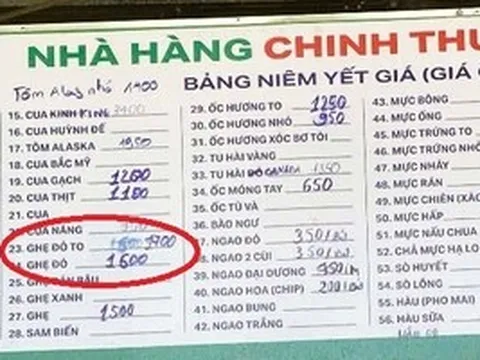 NHÀ HÀNG CHINH THU
Tôm Alas nhỏ 1400
BẢNG NIÊM YẾT GIÁ (GIÁ
15. CUA KINH KING 3400
16. CUA HUỲNH ĐẾ
17. TÔM ALASKA 1950
18. CUA BẮC MỸ
19. CUA GẠCH 1200
20. CUA THỊT 1100
21. CUA
CUA NÂNG
23. GHẸ ĐỎ TO 1900
GHẸ ĐỎ 1600
25. GHẸ
26. GHẸ XANH
27. GHẸ 1500
28. SAM BIỂN
29. ỐC HƯƠNG TO 1250
30. ỐC HƯƠNG NHỎ 950
31. ỐC HƯƠNG XÓC BƠ TỎI
32. TU HÀI VÀNG
33. TU HÀI ĐỎ CANADA
34. ỐC MÓNG TAY 650
35. ỐC TÙ VÀ
36. BÀO NGƯ
37. NGAO ĐỎ 350
38. NGAO 2 CÙI 350
39. NGAO ĐẠI DƯƠNG 350
40. NGAO HOA (CHIP) 200
41. NGAO BUNG
42. NGAO TRẮNG
43. MỰC BÔNG
44. MỰC ỐNG
45. MỰC TRỨNG TO
46. MỰC TRỨNG NHỎ
47. MỰC NHẢY
48. MỰC RÁN
49. MỰC CHIÊN (XÀO)
50. MỰC HẤP
51. MỰC NẤU CHUA
52. CHẢ MỰC HẠ LO
53. SÒ HUYẾT
54. SÒ LÔNG
55. HÀU (PHO MAI)
56. HÀU SỮA